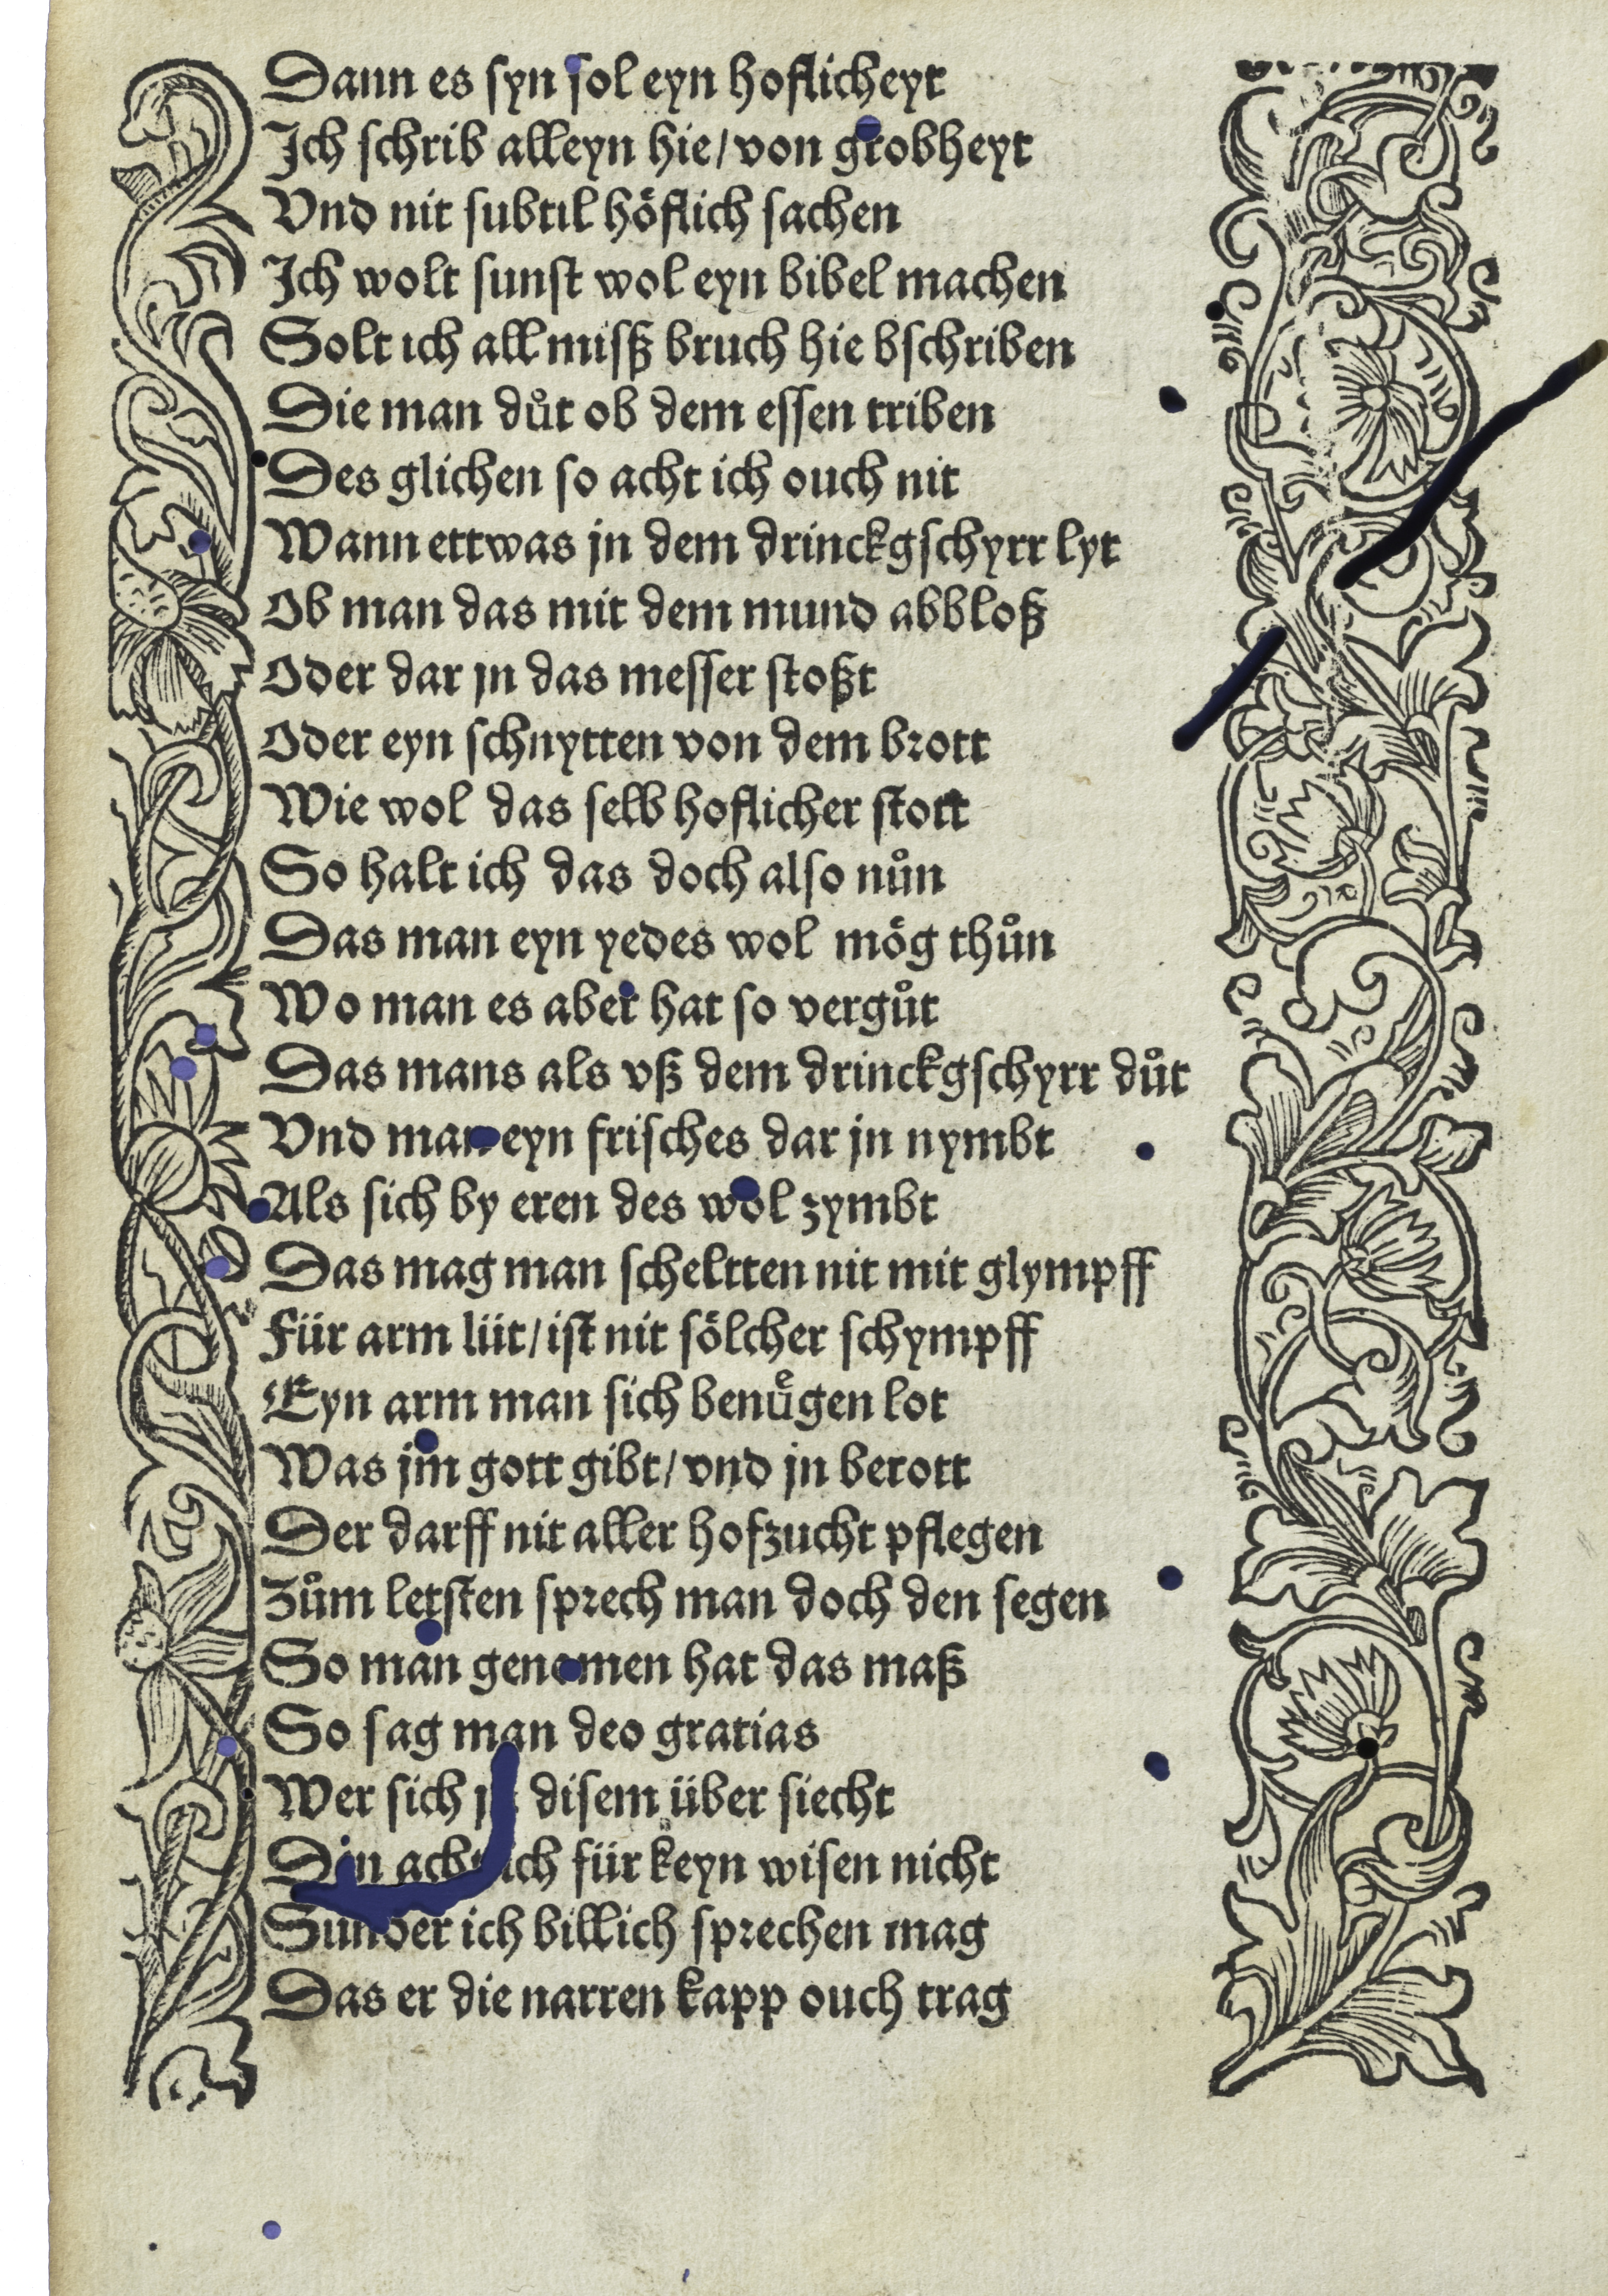 Dann es syn sol eyn hoflicheyt
Ich schrib alleyn hie/ von grobheyt
Vnd nit subtil höflich sachen
Ich wolt sunst wol eyn bibel machen
Solt ich all missz bruch hie bschriben
Die man duͦt ob dem essen triben
Des glichen so acht ich ouch nit
Wann ettwas jn dem drinckgschyrr lyt
Ob man das mit dem mund abbloß
Oder dar jn das messer stoßt
Oder eyn schnytten von dem brott
Wie wol das selb hoflicher stott
So halt ich das doch also nuͦn
Das man eyn yedes wol mög thuͦn
Wo man es aber hat so verguͦt
Das mans als vß dem drinckgschyrr duͦt
Vnd man eyn frisches dar jn nymbt
Als sich by eren des wol zymbt
Das mag man scheltten nit mit glympff
Für arm lüt/ ist nit sölcher schympff
Eyn arm man sich benuͤgen lot
Was jm gott gibt/ vnd jn berott
Der darff nit aller hofzucht pflegen
Zuͦm letsten sprech man doch den segen
So man genomen hat das maß
So sag man deo gratias
Wer sich disem über siecht
acht ich für keyn wisen nicht
Sunder ich billich sprechen mag
Das er die narren kapp ouch trag